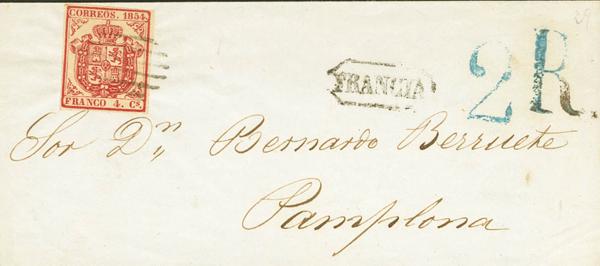 CORREOS. 1854.
FRANCO 4. Cs.
FRANCIA
2R.
29
Sor Dn Bernardo Berruete
Pamplona